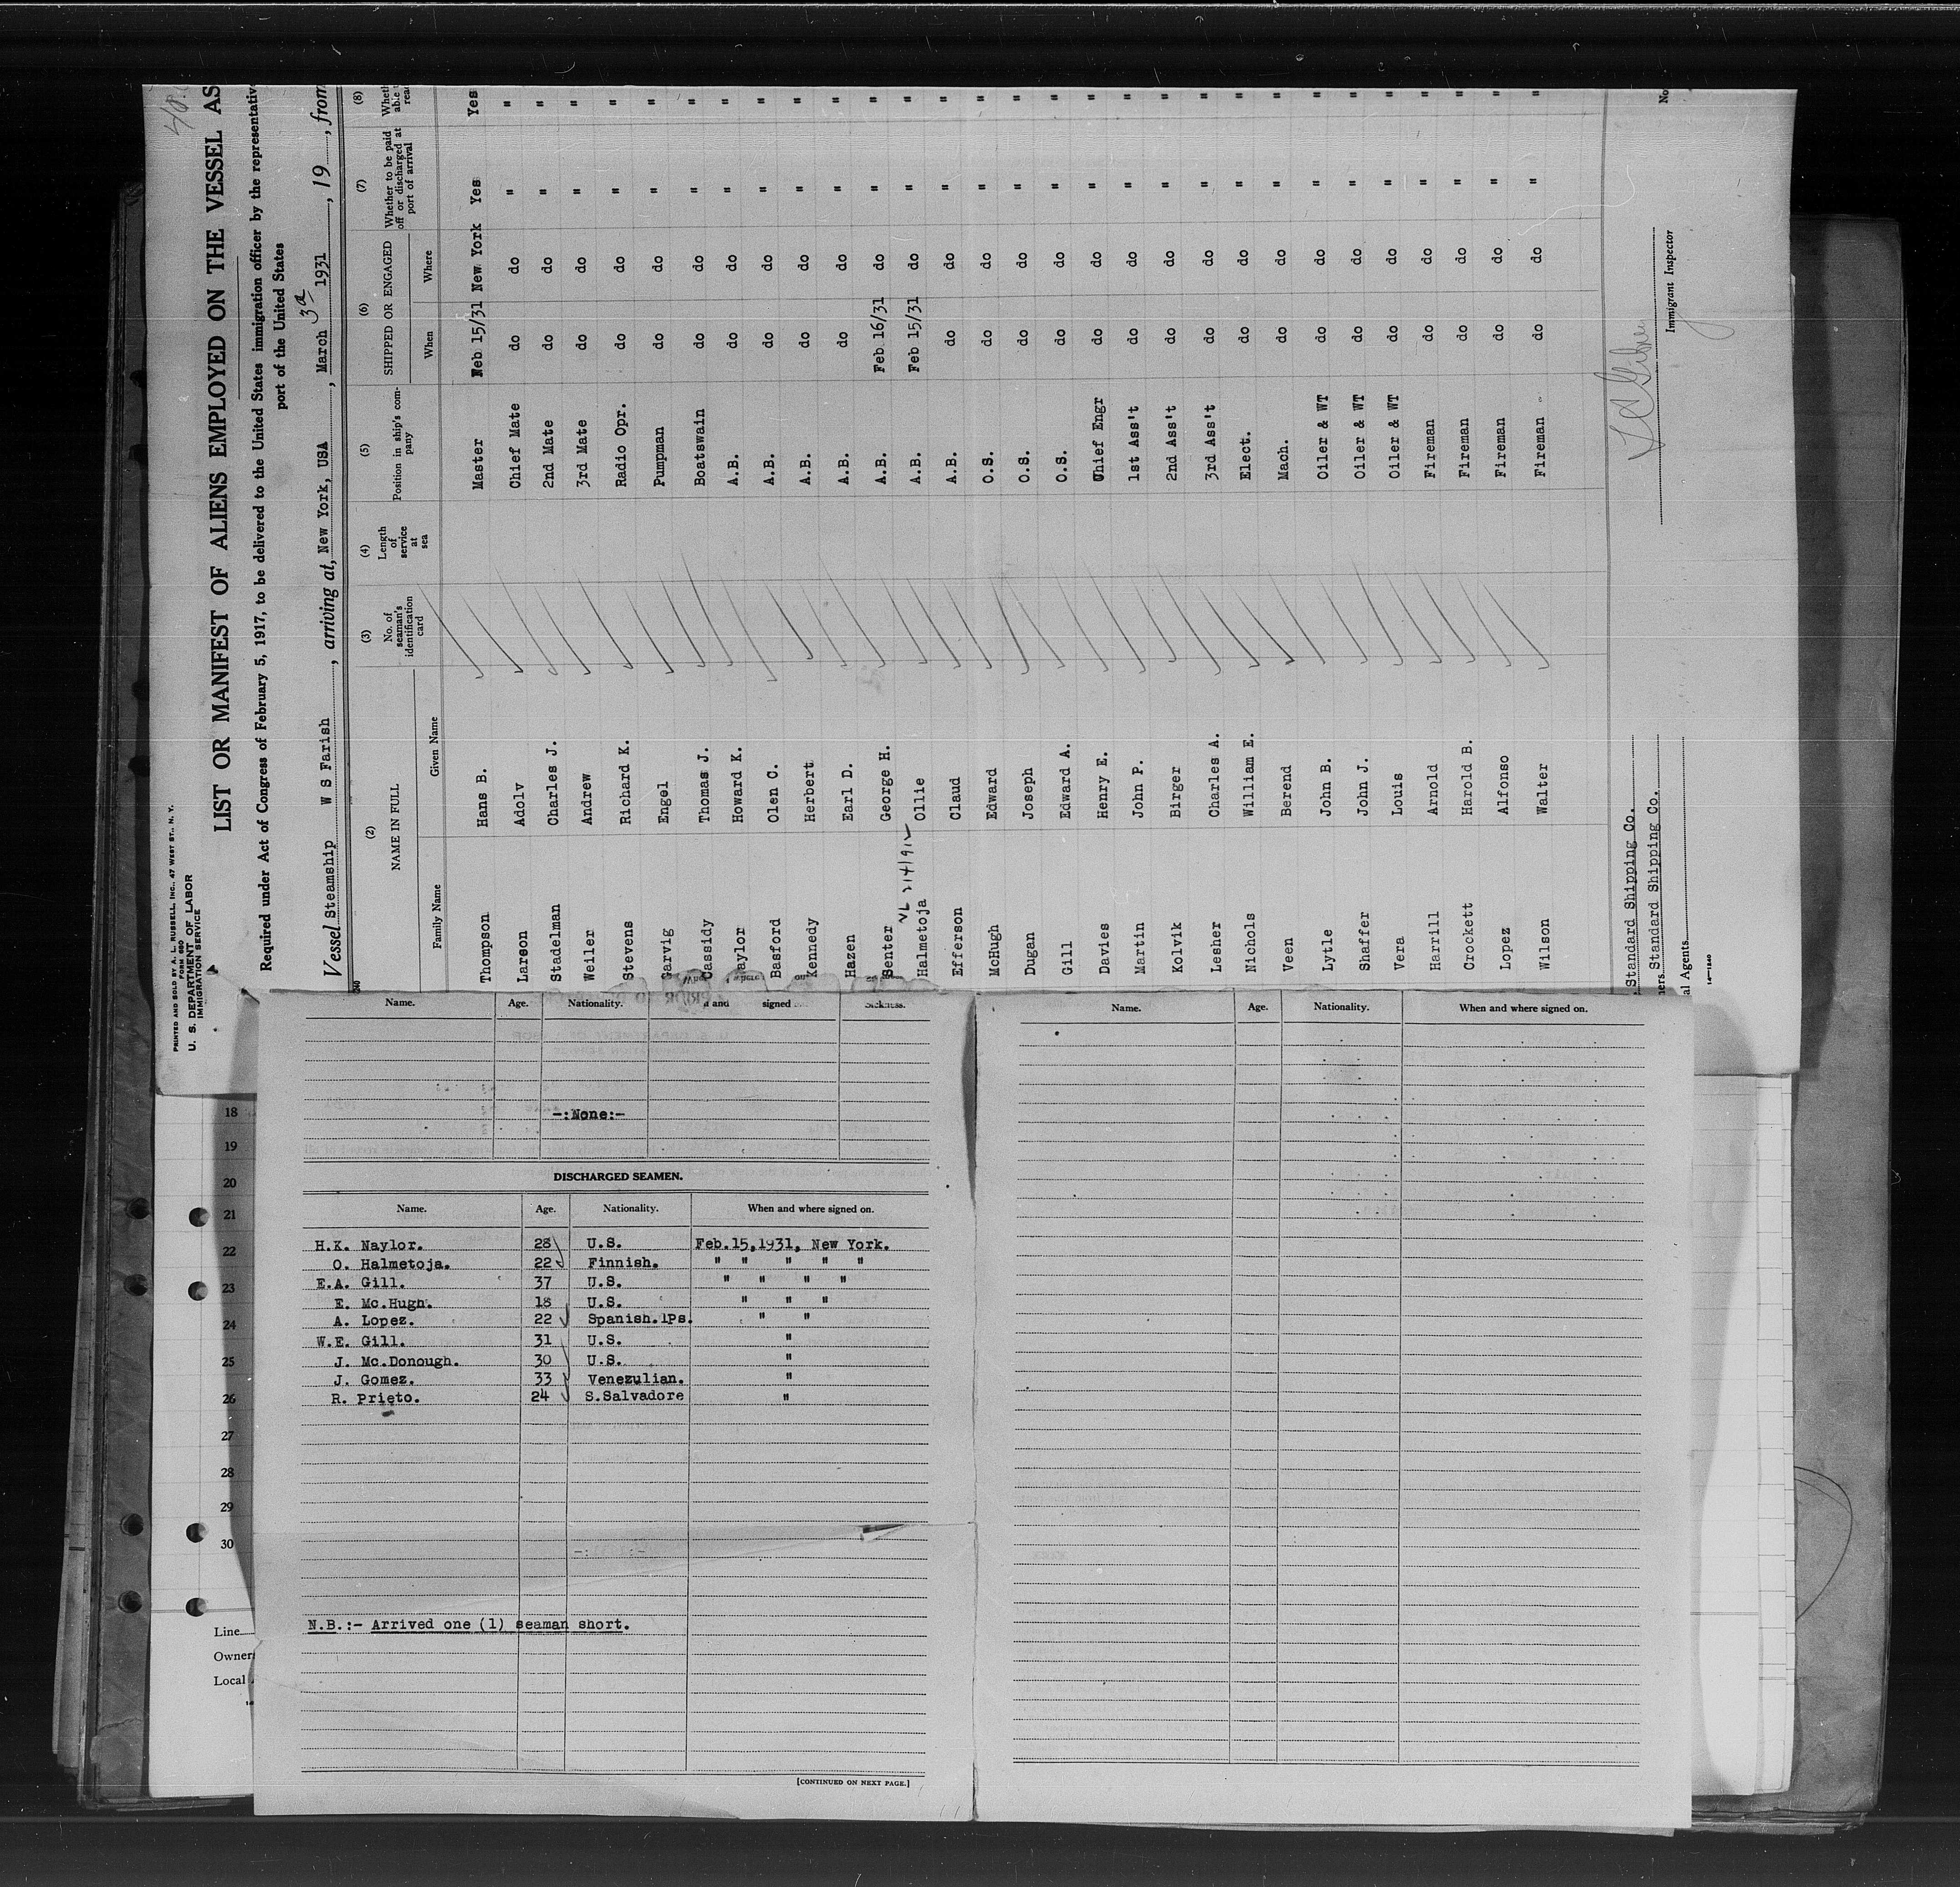 PRINTED AND SOLD BY A. L. RUSSELL, INC., 47 WEST ST., N. Y.
FORM 680
U. S. DEPARTMENT OF LABOR
IMMIGRATION SERVICE
LIST OR MANIFEST OF ALIENS EMPLOYED ON THE VESSEL AS
Required under Act of Congress of February 5, 1917, to be delivered to the United States immigration officer by the representativ
port of the United States
Vessel Steamship W S Farish, arriving at, New York, USA, March 3d 1931, 19, from
(2) (3) (4) (5) (6) (7) (8)
NAME IN FULL
Family Name Given Name
No. of seaman's identification card
Length of service at sea
Position in ship's company
SHIPPED OR ENGAGED
When Where
Whether to be paid off or discharged at port of arrival
Wheth able read
Thompson Hans B. Master Feb 15/31 New York Yes Yes
Larson Adolv Chief Mate do do " "
Stadelman Charles J. 2nd Mate do do " "
Weiler Andrew 3rd Mate do do " "
Stevens Richard K. Radio Opr. do do " "
Garvig Engel Pumpman do do " "
Cassidy Thomas J. Boatswain do do " "
aylor Howard K. A.B. do do " "
Basford Olen C. A.B. do do " "
Kennedy Herbert A.B. do do " "
Hazen Earl D. A.B. do do " "
Senter George H. A.B. Feb 16/31 do " "
Halmetoja Ollie A.B. Feb 15/31 do " "
Efferson Claud A.B. do do " "
McHugh Edward O.S. do do " "
Dugan Joseph O.S. do do " "
Gill Edward A. O.S. do do " "
Davies Henry E. Chief Engr do do " "
Martin John P. 1st Ass't do do " "
Kolvik Birger 2nd Ass't do do " "
Lesher Charles A. 3rd Ass't do do " "
Nichols William E. Elect. do do " "
Veen Berend Mach. do do " "
Lytle John B. Oiler & WT do do " "
Shaffer John J. Oiler & WT do do " "
Vera Louis Oiler & WT do do " "
Harrill Arnold Fireman do do " "
Crockett Harold B. Fireman do do " "
Lopez Alfonso Fireman do do " "
Wilson Walter Fireman do do " "
Standard Shipping Co.
ners Standard Shipping Co.
al Agents
Immigrant Inspector
No
Name. Age. Nationality. and signed Sickness.
-:None:-
DISCHARGED SEAMEN.
Name. Age. Nationality. When and where signed on.
H.K. Naylor. 28 U.S. Feb.15,1931, New York.
O. Halmetoja. 22 Finnish. " " " " "
E.A. Gill. 37 U.S. " " " "
E. Mc.Hugh. 18 U.S. " " "
A. Lopez. 22 Spanish.1Ps. " "
W.E. Gill. 31 U.S. "
J. Mc.Donough. 30 U.S. "
J. Gomez. 33 Venezulian. "
R. Prieto. 24 S.Salvadore "
N.B.:- Arrived one (1) seaman short.
[CONTINUED ON NEXT PAGE.]
Name. Age. Nationality. When and where signed on.
18
19
20
21
22
23
24
25
26
27
28
29
30
Line
Owner
Local